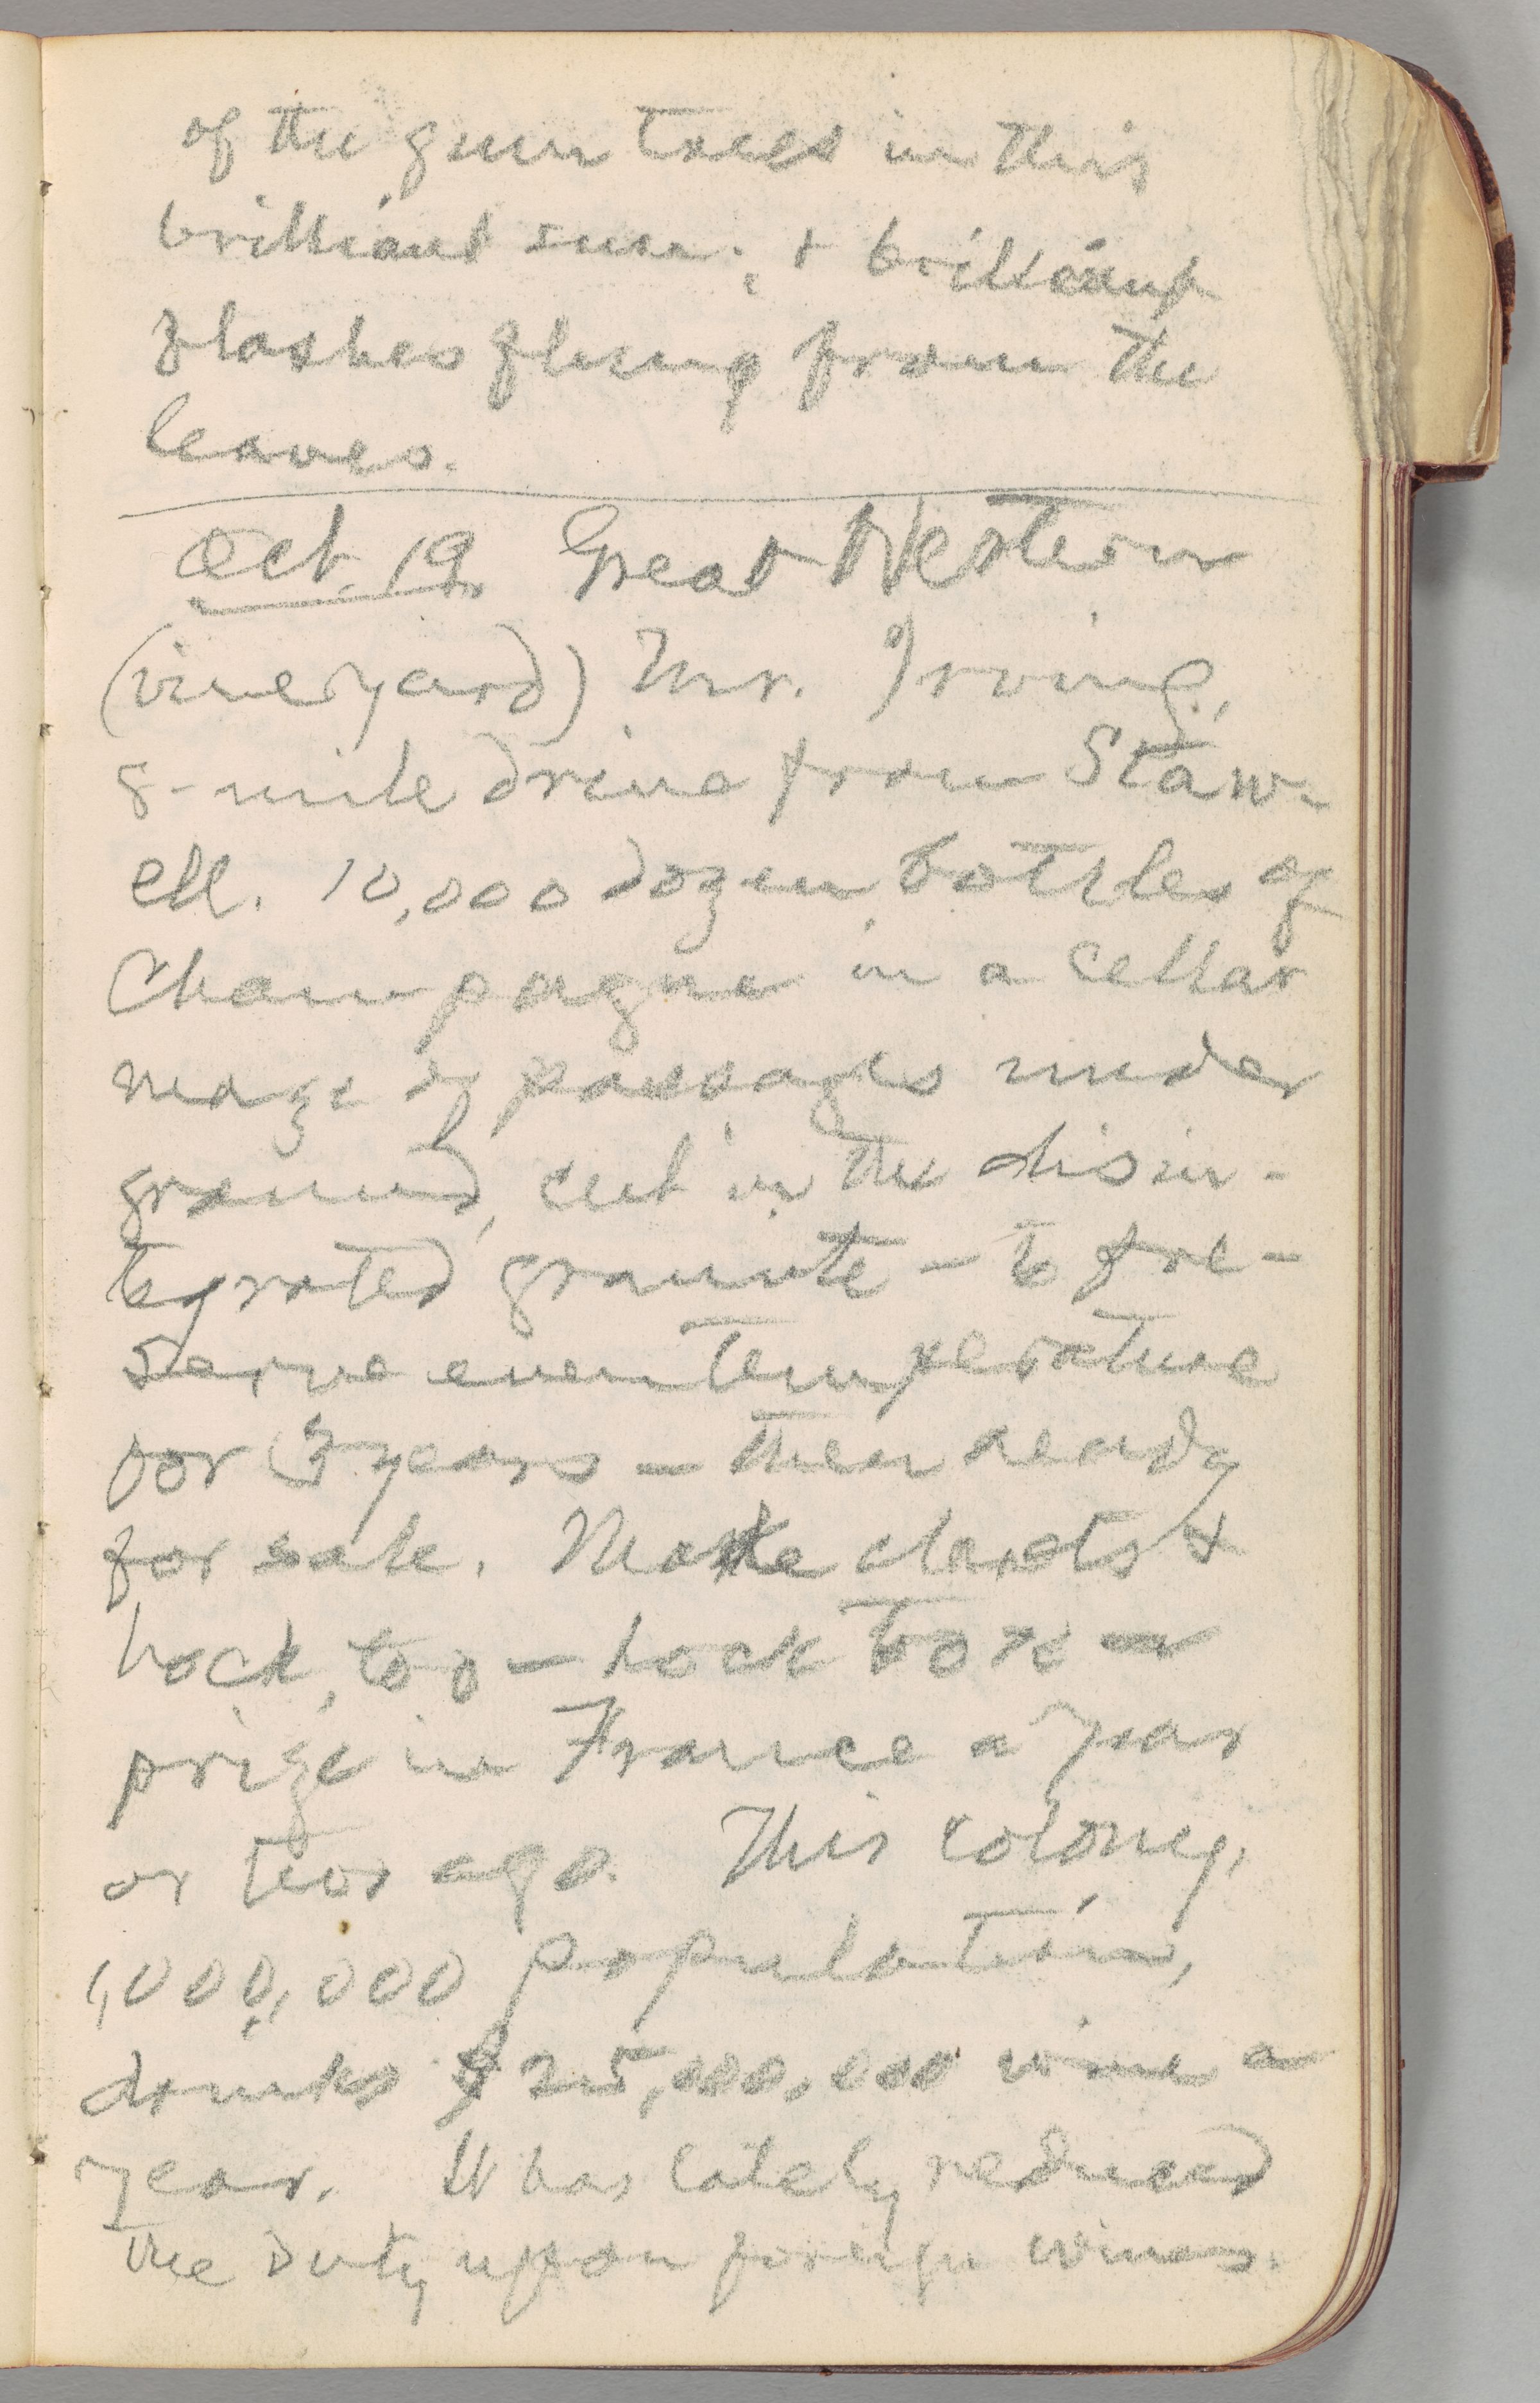 of the gum trees in this
brilliant sun; & brilliant
flashes flung from the
leaves.
Oct. 19. Great Western
(vineyard) Mr. Irving,
8-mile drive from Staw-
ell. 10,000 dozen bottles of
Champagne in a cellar
maze of passages under
ground, cut in the disin-
tegrated granite — to pre-
serve even temperature
for 3 years — then ready
for sale. Make clarets &
hock, too — hock took
prize in France a year
or two ago. This colony,
1,000,000 population,
drinks $25,000,000 wine a
year. It has lately reduced
the duty upon foreign wines.